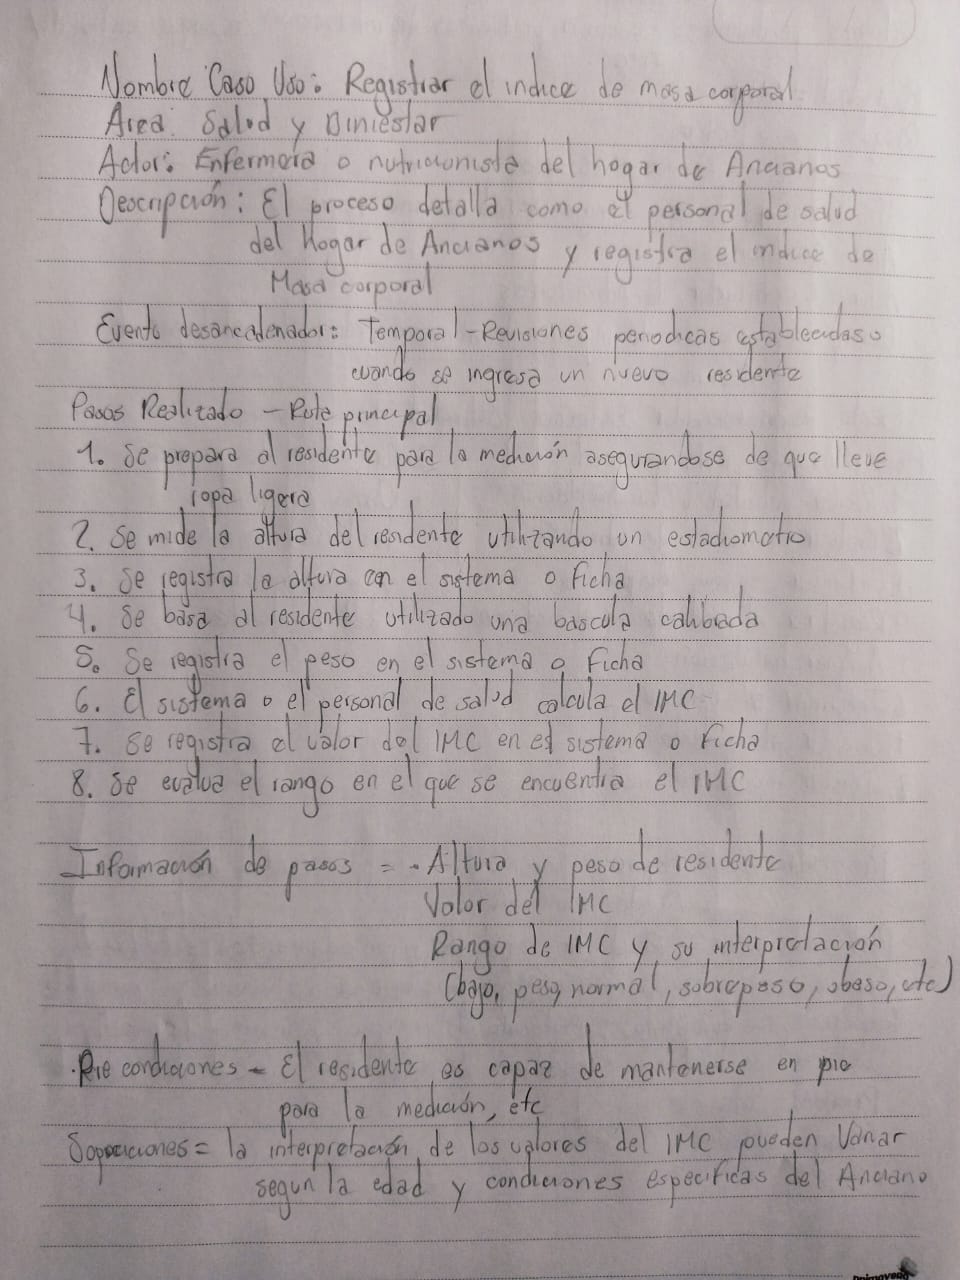 Nombre Caso Uso: Registrar el indice de masa corporal
Area: Salud y Biniestar
Actor: Enfermera o nutricionista del hogar de Ancianos
Descripción: El proceso detalla como el personal de salud
del Hogar de Ancianos y registra el indice de
Masa corporal
Evento desancadenador: Temporal - Revisiones periodicas establecidas o
cuando se ingresa un nuevo residente
Pasos Realizado - Ruta principal
1. Se prepara al residente para la medición asegurandose de que lleve
ropa ligera
2. Se mide la altura del residente utilizando un estadiometro
3. Se registra la altura en el sistema o ficha
4. Se basa al residente utilizado una bascula calibrada
5. Se registra el peso en el sistema o Ficha
6. El sistema o el personal de salud calcula el IMC
7. Se registra el valor del IMC en el sistema o ficha
8. Se evalua el rango en el que se encuentra el IMC
Información de pasos = - Altura y peso de residente
Valor del IMC
Rango de IMC y su interpretación
(bajo, peso, normal, sobrepeso, obeso, etc)
Pre condiciones - El residente es capaz de mantenerse en pie
para la medición, etc
= la interpretación de los valores del IMC pueden Variar
segun la edad y condiciones especificas del Anciano